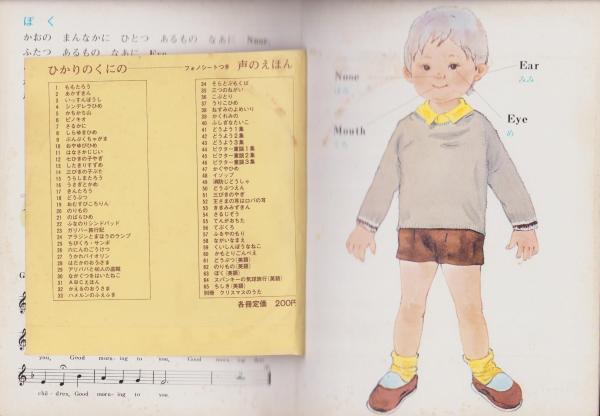 ぼく
かおの まんなかに ひとつ あるもの なあに Nose,
ふたつ あるもの なあに Eye
ひかりのくにの フォノシートつき 声のえほん
1 ももたろう
2 あかずきん
3 いっすんぼうし
4 シンデレラひめ
5 かちかち山
6 ピノキオ
7 さるかに
8 しらゆきひめ
9 ぶんぶくちゃがま
10 おやゆびひめ
11 はなさかじじい
12 七ひきの子やぎ
13 したきりすずめ
14 三びきの子ぶた
15 うらしまたろう
16 うさぎとかめ
17 きんたろう
18 どうぶつ
19 おむすびころりん
20 のりもの
21 のばらひめ
22 ふなのりシンドバッド
23 ガリバー旅行記
24 アラジンとまほうのランプ
25 ちびくろ・サンボ
26 六にんのごうけつ
27 うかれバイオリン
28 はだかのおうさま
29 アリババと40人の盗賊
30 ながぐつをはいたねこ
31 ABCえほん
32 かえるのおうさま
33 ハメルンのふえふき
34 そらとぶもくば
35 三つのねがい
36 こぶとり
37 うりこひめ
38 ねずみのよめいり
39 かくれみの
40 ふしぎなたいこ
41 どうよう1集
42 どうよう2集
43 どうよう3集
44 ビクター童謡1集
45 ビクター童謡2集
46 ビクター童謡3集
47 かぐやひめ
48 イソップ
49 消防じどうしゃ
50 どうぶつえん
51 三びきのやぎ
52 王さまの耳はロバの耳
53 ききみみずきん
54 さるじぞう
55 てんがおもち
56 てぶくろ
57 ふるやのもり
58 ながいなまえ
59 くいしんぼうなねこ
60 かもとりごんべえ
61 どうぶつ(英語)
62 のりもの(英語)
63 ぼく(英語)
64 スパンキーの気球旅行(英語)
65 ちしき(英語)
別冊 クリスマスのうた
各冊定価 200円
you, Good morn- ing to you, Good morn- ing
chil - dren, Good morn - ing to you.
Nose
はな
Mouth
くち
Ear
みみ
Eye
め